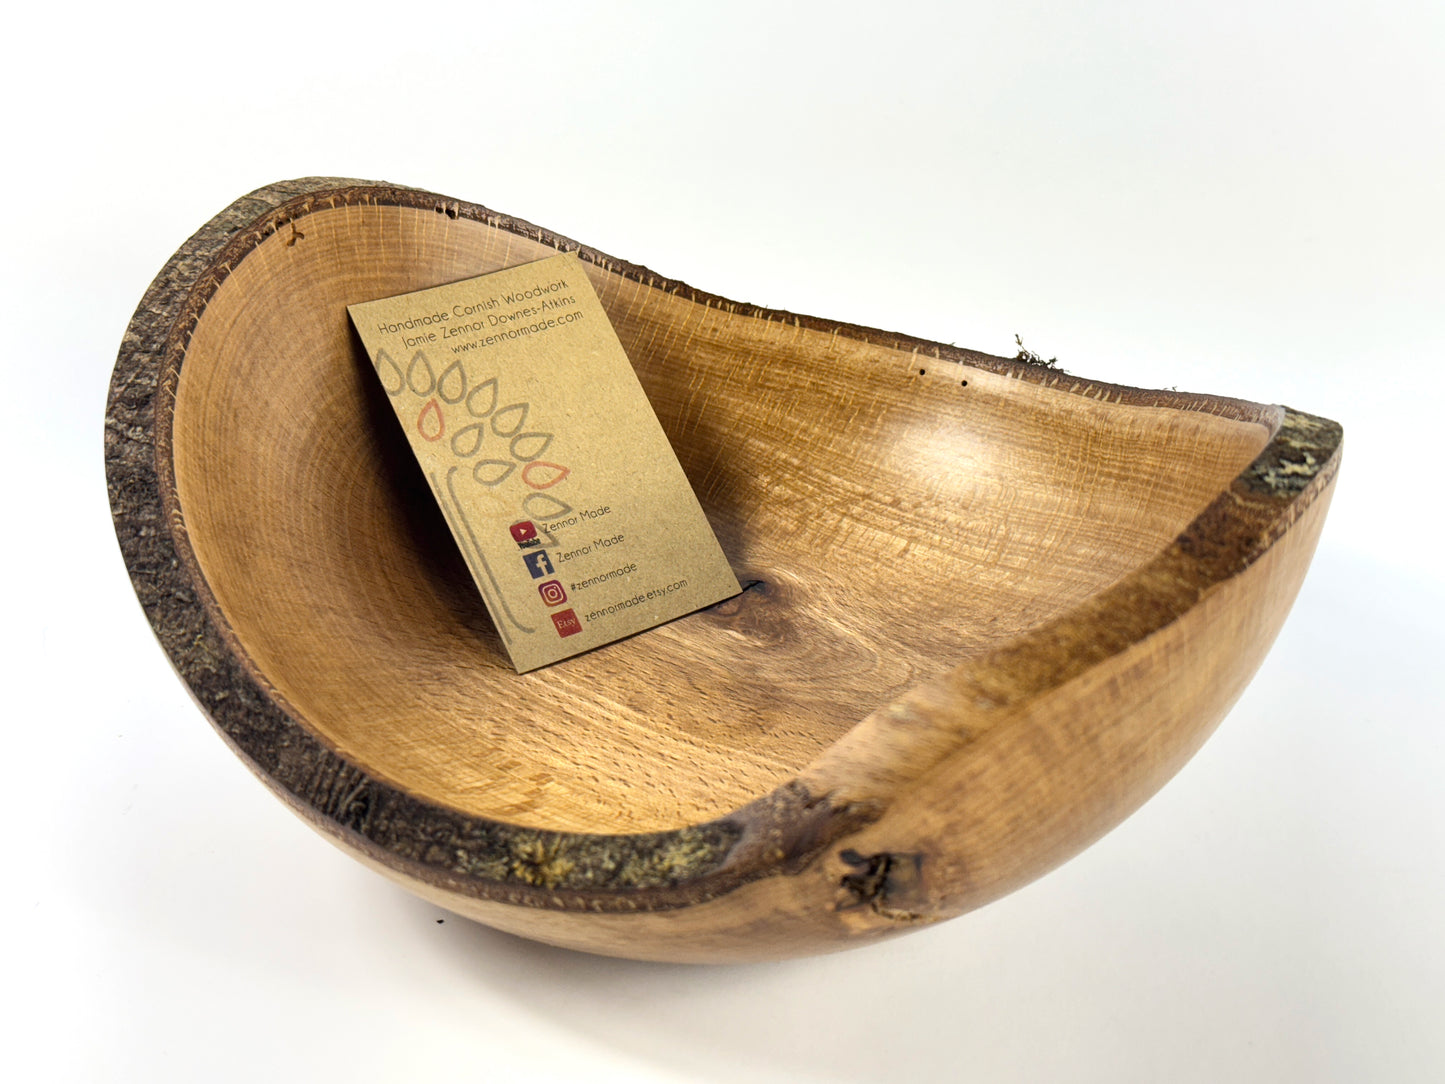 Handmade Cornish Woodwork
Jamie Zennor Downes-Atkins
www.zennormade.com
YouTube
Zennor Made
Zennor Made
#zennormade
Etsy
zennormade.etsy.com